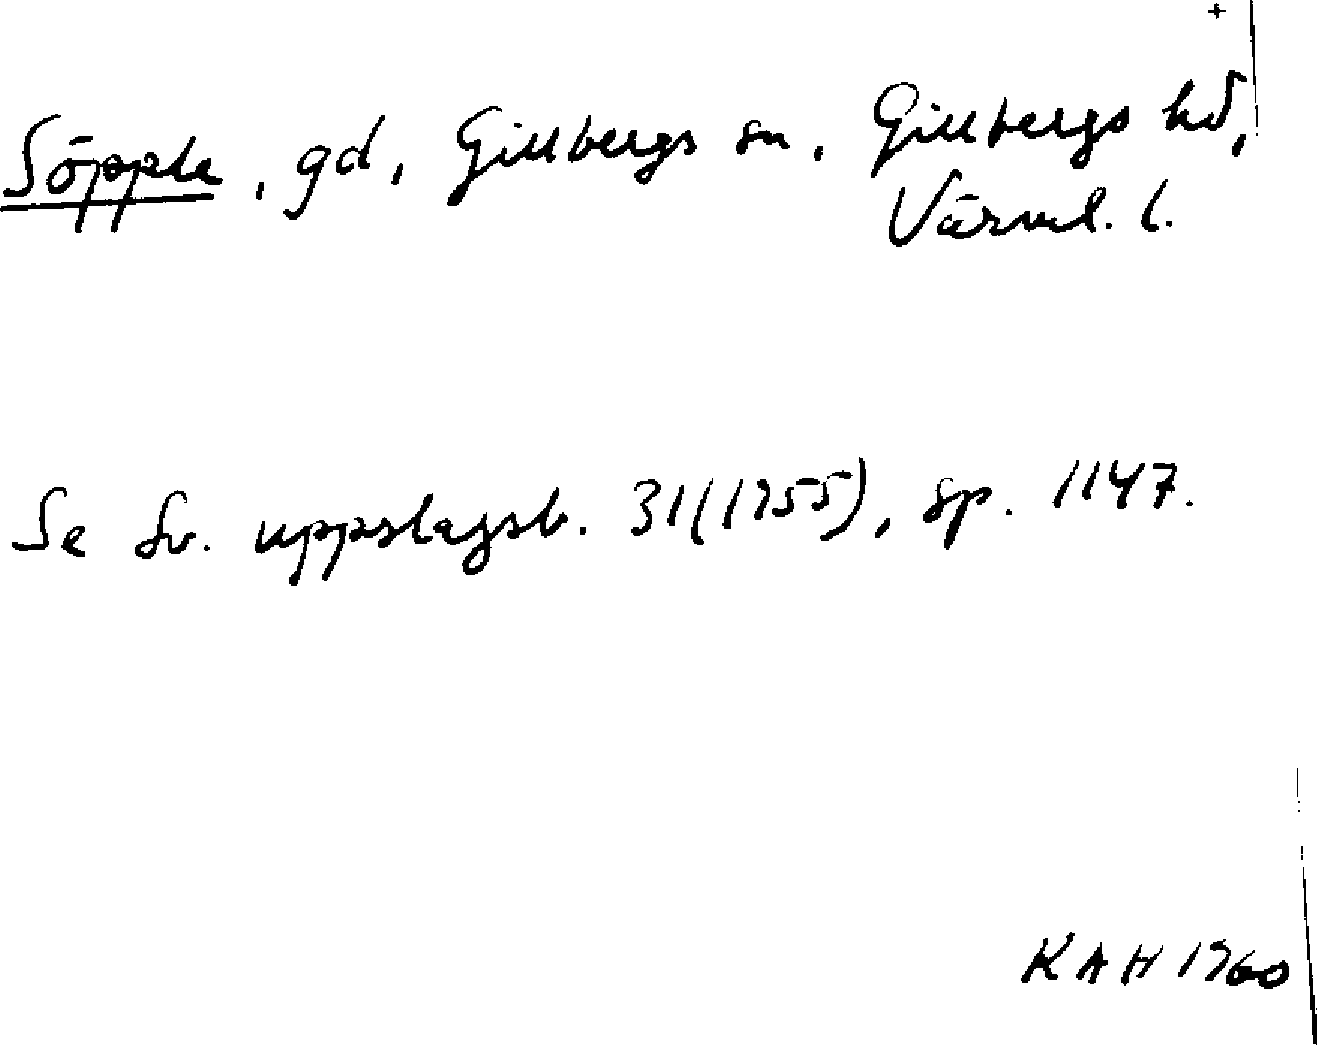 +
Söpple, gd, Gillbergs sn, Gillbergs hd,
Värml. l.
Se Sv. uppslagsb. 31(1955), sp. 1147.
KAH 1960